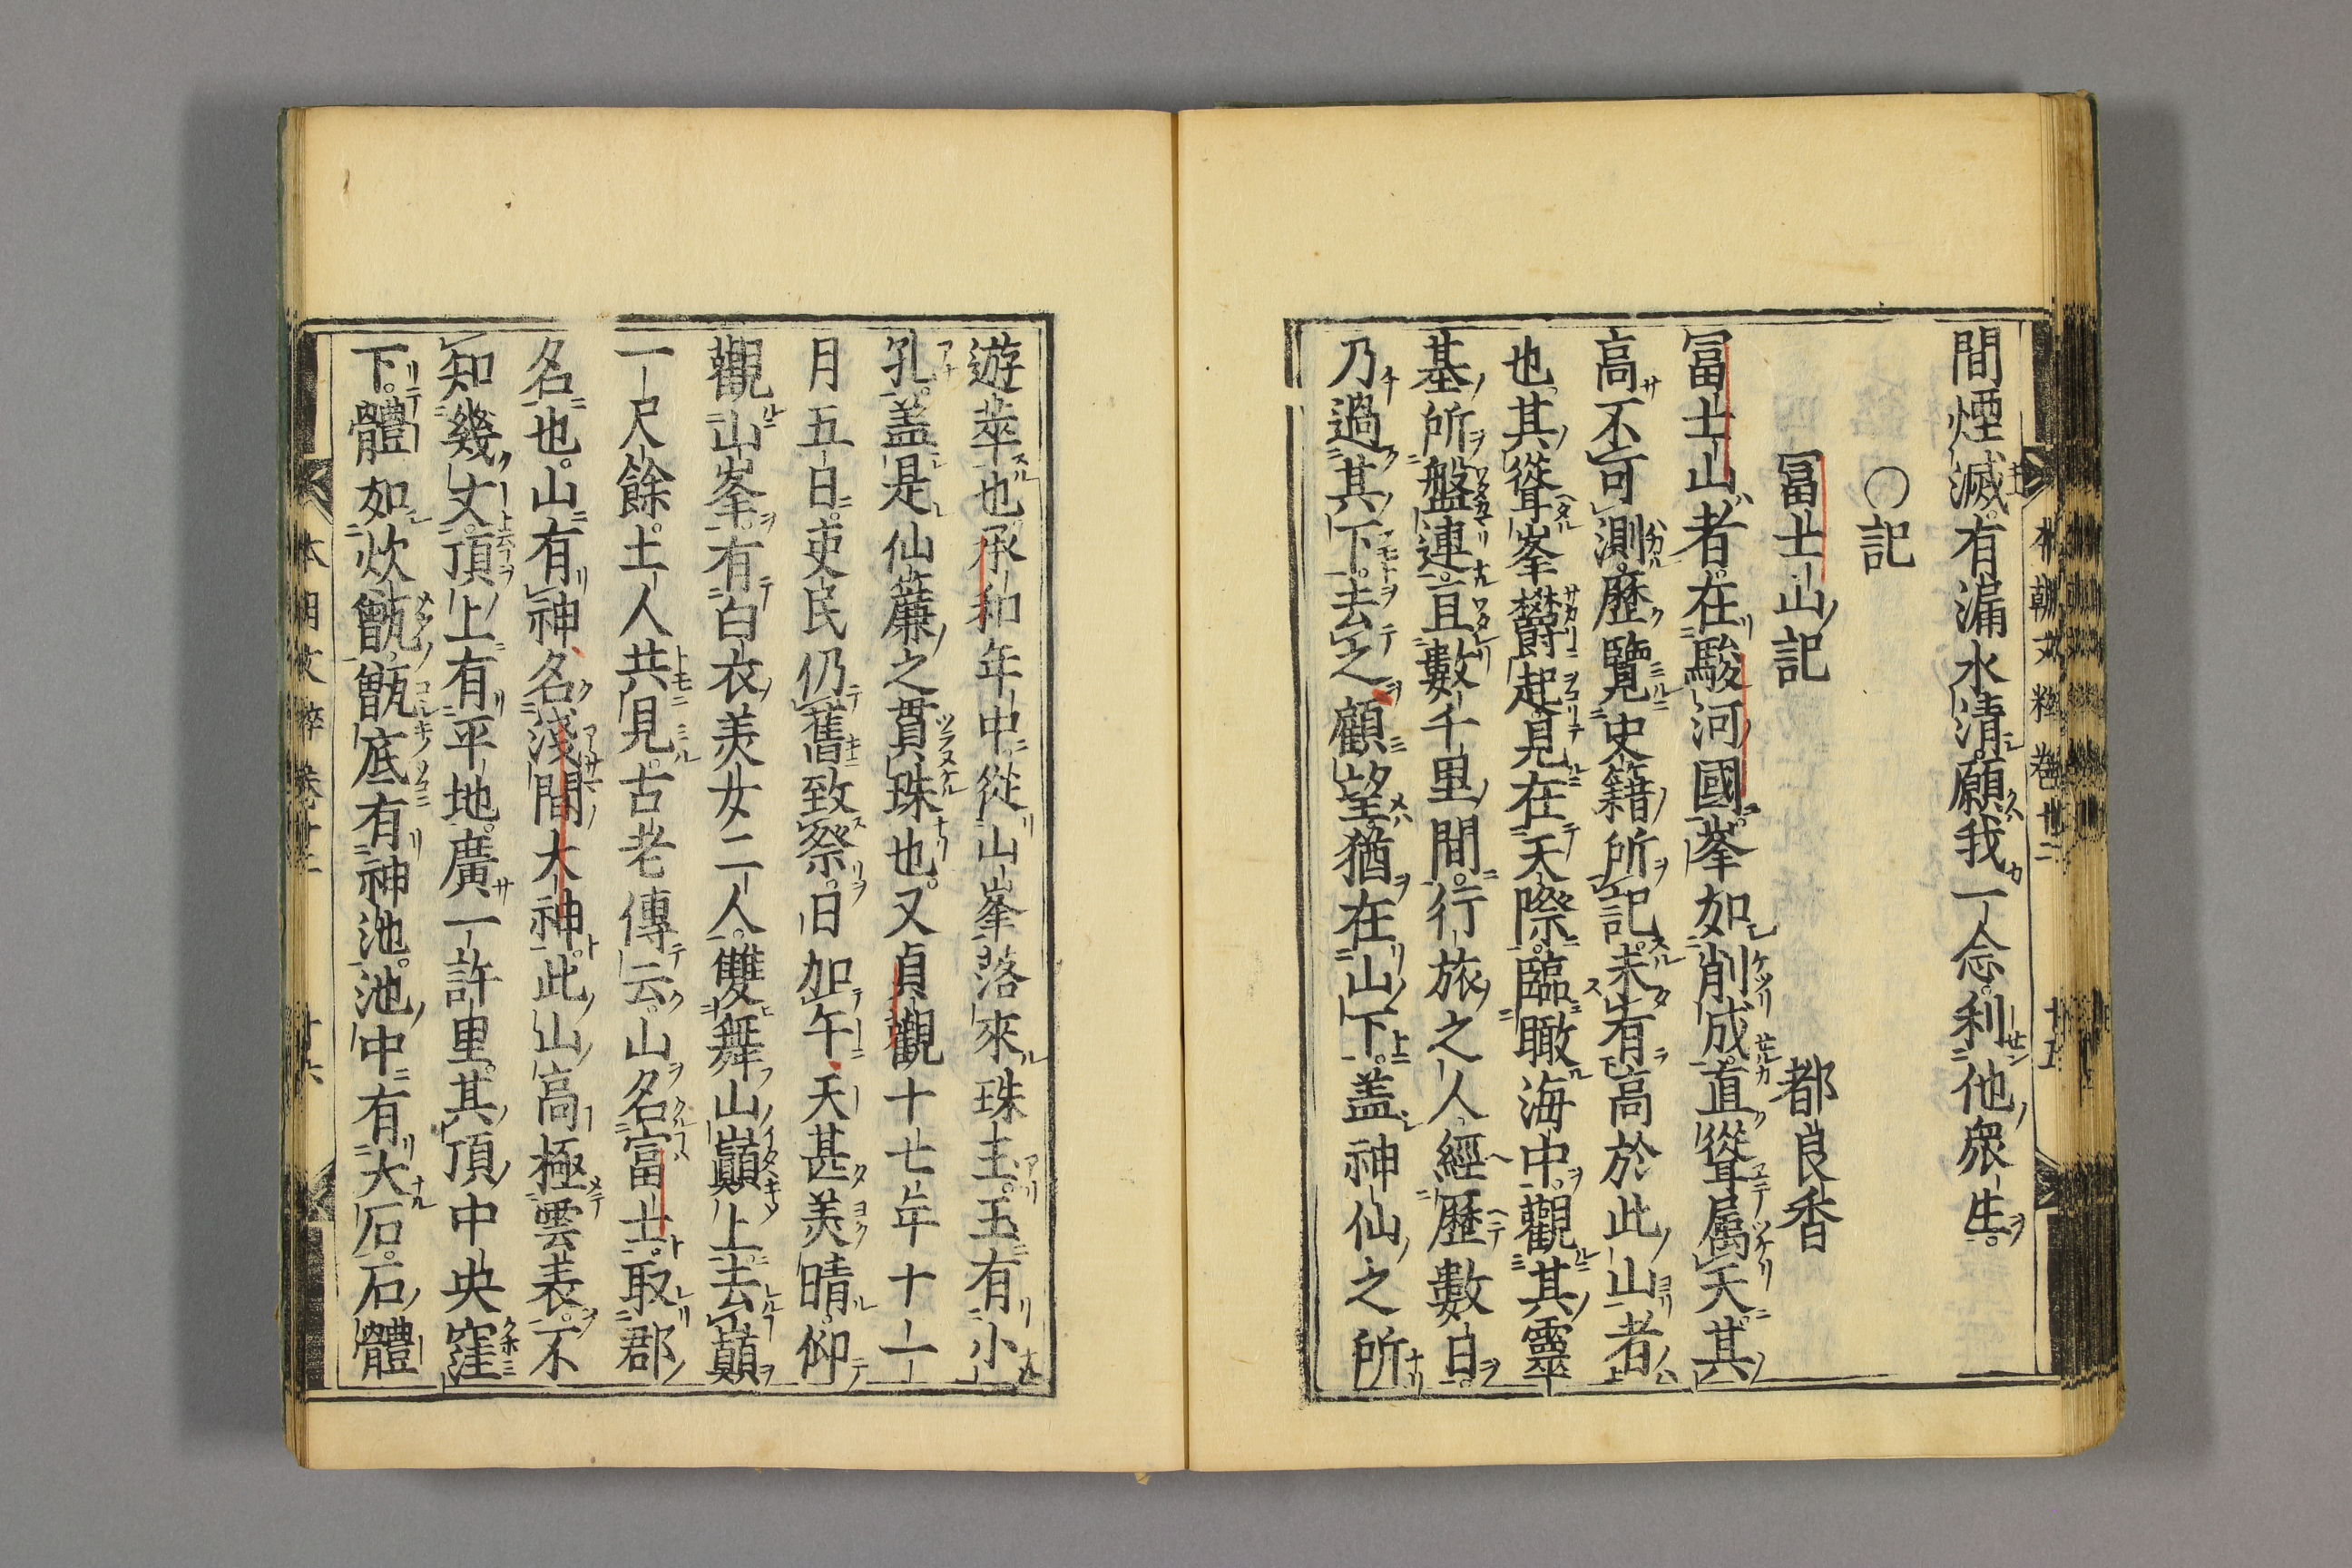 間煙滅。有漏水清。願我一念。利他衆生。
○記
冨士山記 都良香
冨士山者。在駿河國。峯如削成。直聳属天。其
高不可測。歷覽史籍所記。未有高於此山者
也。其聳峯欝起。見在天際。臨瞰海中。觀其靈
基所盤連。亘數千里間。行旅之人。經歷數日。
乃過其下。去之顧望。猶在山下。盖神仙之所
遊萃也。承和年中。從山峯落來珠玉。玉有小
孔。盖是仙簾之貫珠也。又貞觀十七年十一
月五日。吏民仍舊致祭。日加午天甚美晴。仰
觀山峯。有白衣美女二人。雙舞山巓上。去巓
一尺餘。土人共見。古老傳云。山名富士。取郡
名也。山有神。名淺間大神。此山高。極雲表。不
知幾丈。頂上有平地。廣一許里。其頂中央窪
下。體如炊甑。甑底有神池。池中有大石。石體
本朝文粹卷十二 十五
本朝文粹卷十二 十六